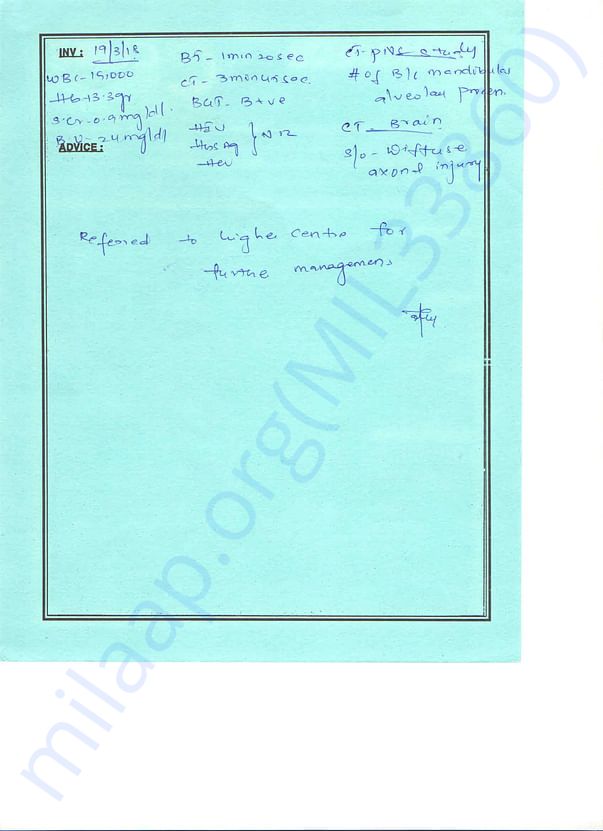 INV : 19/3/18
WBC - 15,000
Hb - 13.3gr
S.Cr - 0.9 mg/dl.
B.U - 24 mg/dl
ADVICE :
BT - 1min 20sec
CT - 3min 45sec.
B&T - B+ve
HIV
HBsAg } NR
HCV
CT - PNS study
# of B/L mandibular
alveolar process.
CT Brain
S/o - Diffuse
axonal injury
Refered to higher centre for
further management
milaap.org(MIL33860)